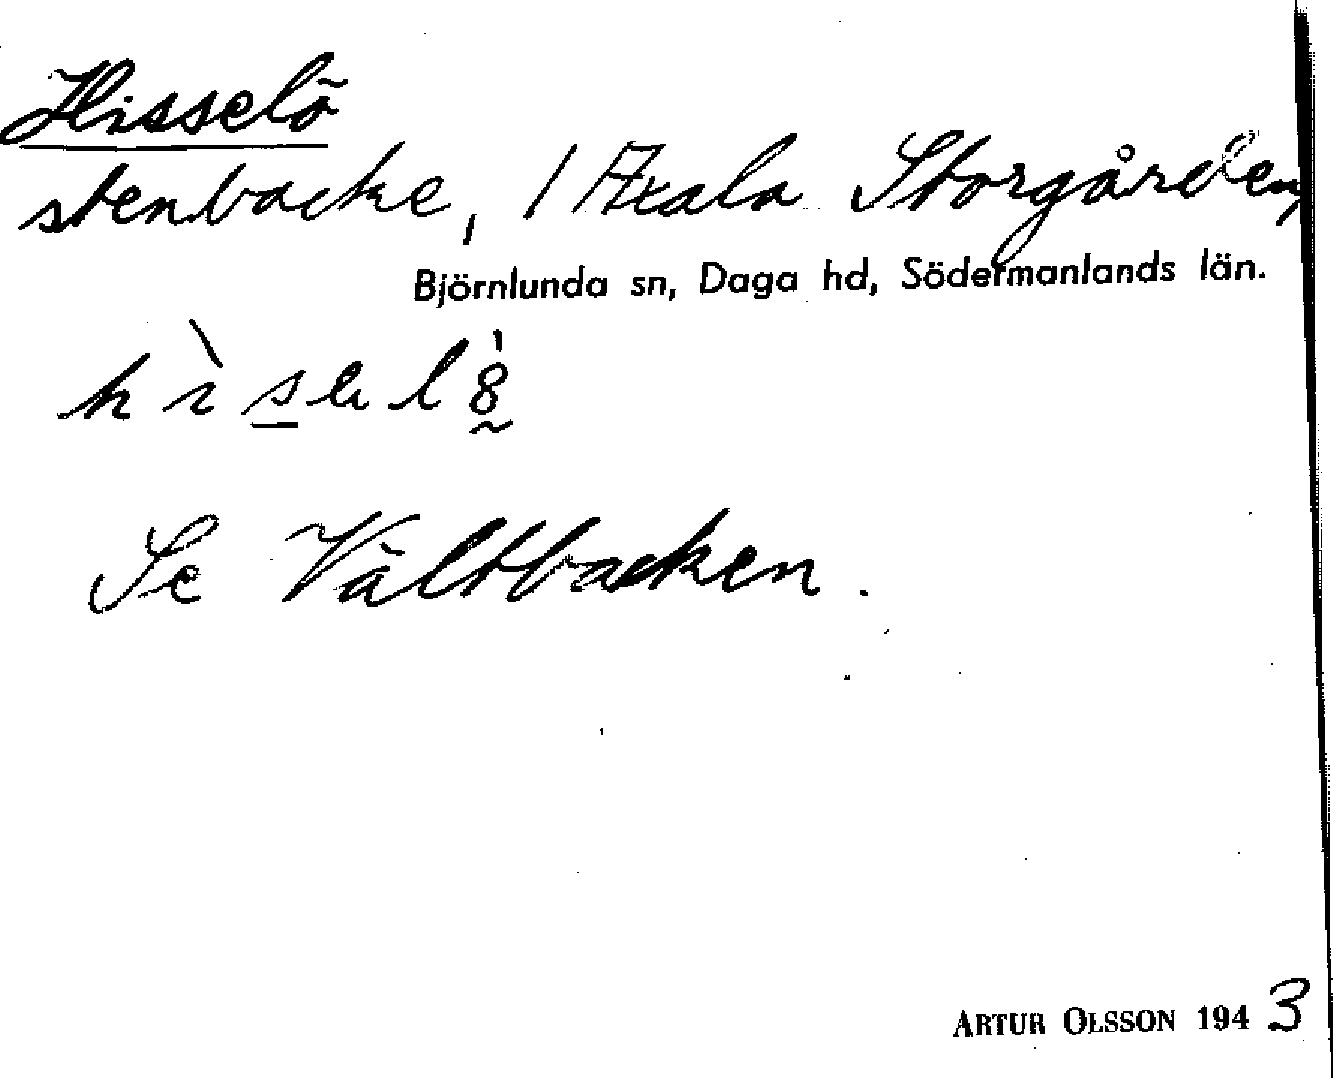 Hisselö
stenbacke, 1 Axala Storgården,
Björnlunda sn, Daga hd, Södermanlands län.
Se Vältbacken.
ARTUR OLSSON 1943